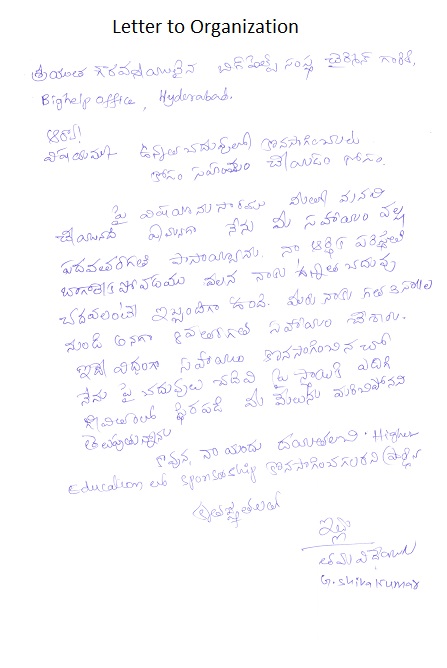 Letter to Organization
శ్రీయుత గౌరవనీయులైన బిగ్‌హెల్ప్ సంస్థ చైర్మెన్ గారికి,
Bighelp office, Hyderabad.
ఆర్యా!
విషయము ఉన్నత చదువులో కొనసాగించుటకు
కోసం సహాయం చేయడం కోసం.
పై విషయానుసారము మనవి
చేయునది ఏమనగా నేను మీ సహాయం వల్ల
పదవతరగతి పాసాయ్యాను. నా ఆర్థిక పరిస్థితి
బాగాలేక పోవడము వలన నాకు ఉన్నత చదువు
చదవలంటే ఇబ్బందిగా ఉంది. మీరు నాకు గత 3 సంలల
నుండి అనగా 8వ తరగతి సహాయం చేశారు.
ఇదే విధంగా సహాయం కొనసాగించిన చో
నేను పై చదువులు చదివి పై స్థాయికి ఎదిగి
జీవితంలో స్థిరపడి మీ మేలును మరిచిపోనని
తెలుపుతున్నాను
కావున, నా యందు దయతలచి Higher
Education లో sponsorship కొనసాగించగలరని ప్రార్థన
కృతజ్ఞతలతో
ఇట్లు
తమ విధేయుడు
G. Shiva Kumar